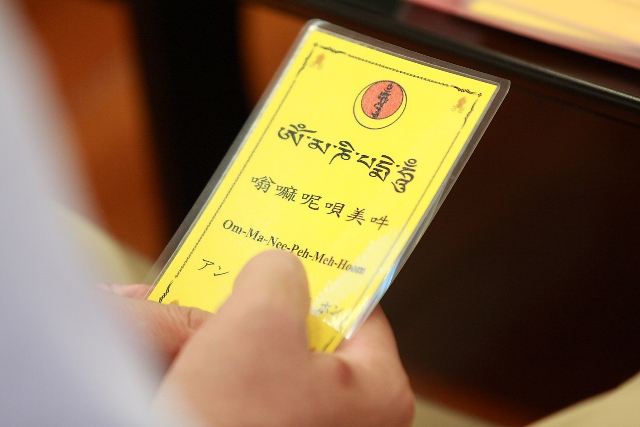 ཨོཾ་མ་ཎི་པདྨེ་ཧཱུྃ
嗡嘛呢唄美吽
Om-Ma-Nee-Peh-Meh-Hoom
アン ホン